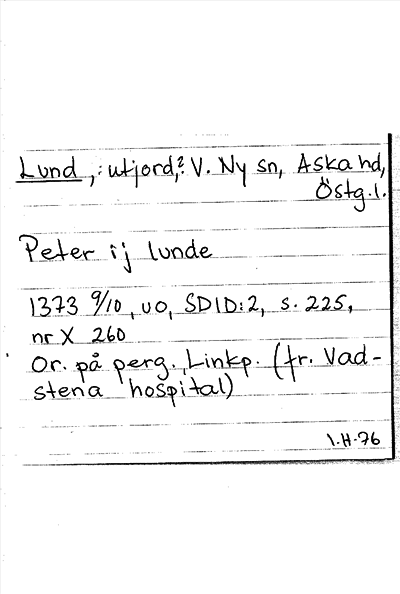 Lund, :utjord,? V. Ny sn, Aska hd,
Östg.l.
Peter ij lunde
1373 9/10, uo, SDID:2, s. 225,
nr X 260
Or. på perg., Linkp. (fr. Vad-
stena hospital)
I.H-76